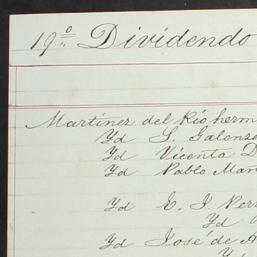 19º Dividendo
Martinez del Rio herm
Yd S. Galenze
Yd Vicenta D
Yd Pablo Mar
Yd E. J Perr
Yd
Yd José de A
Yd